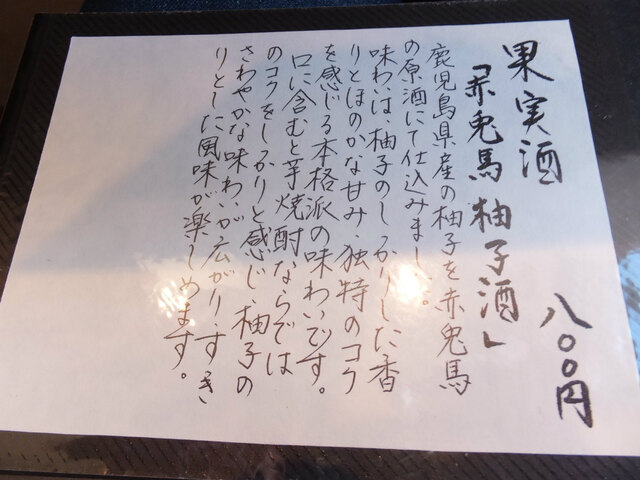 果実酒
「赤兎馬 柚子酒」
八〇〇円
鹿児島県産の柚子を赤兎馬
の原酒にて仕込みました。
味わいは、柚子のしっかりした香
りとほのかな甘み、独特のコク
を感じる本格派の味わいです。
口に含むと芋焼酎ならでは
のコクをしっかりと感じ、柚子の
さわやかな味わいが広がり、すっき
りとした風味が楽しめます。